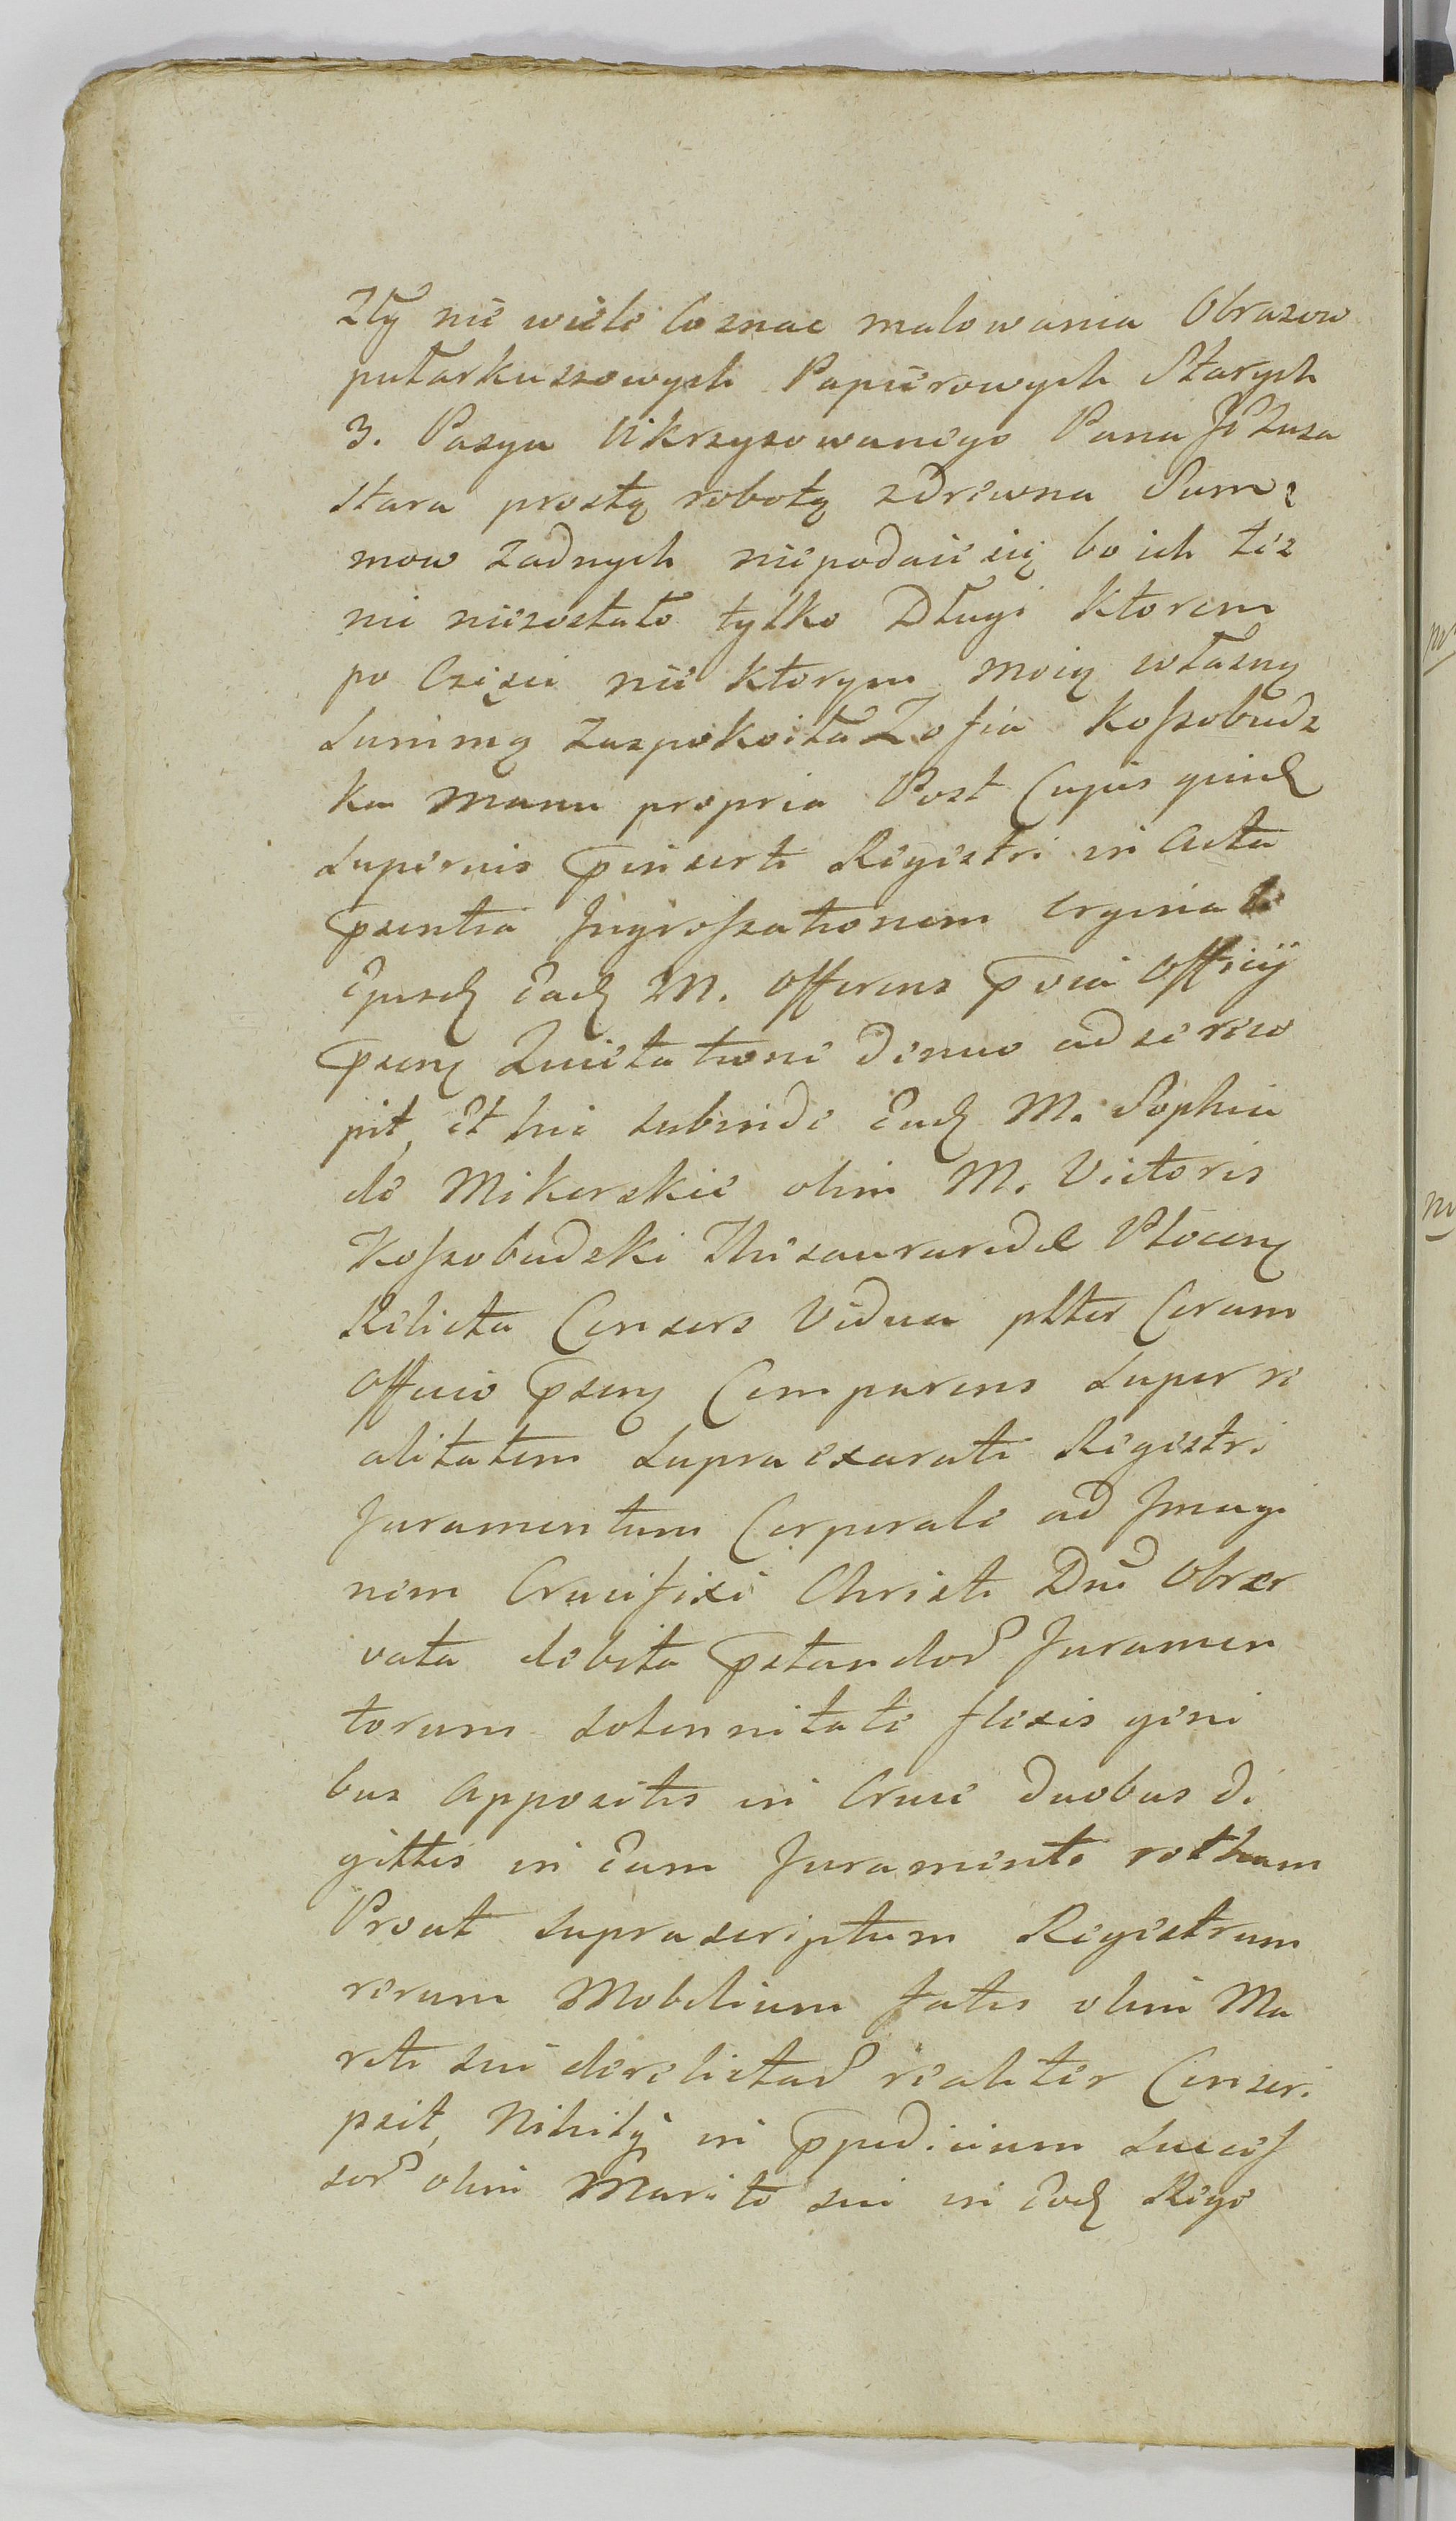 Zły nie wiele co znac malowania Obrazow
pułarkuszowych Papierowych Starych
3. Pasya Ukrzyzowanego Pana JeZusa
stara prostą robotą zdrewna Sum=
mow zadnych niepodaie się bo ich tez
nie niezostało tylko Długi ktorem
po Częsci nie ktorym moią własną
Summą zaspokoiła Zofia Koszobudz
ka manu propria Post Cujus quid
Supernis pinserti Registri in Acta
psentia Ingrossationem
Ejusd Ead M. Offerens Officij
psens Quietatione denuo ad se rece
pit, Et hic subinde Ead M. Sophia
de Mikorskie olim M. Victoris
Koszobudzki Thesaurarid Płocens
Relicta Consors Vidua plter Coram
Officio psens Comparens Super re
alitatem Supra exarati Registri
Juramentum Corporale ad Imagi
nem Crucifixi Christi Dni Obser
vata debita pstandor Juramen
torum solennitate flexis geni
bus Appositis in Cruce duobus di
gittis in Eam Juramenti rotham
Prout supra scriptum Registrum
rerum Mobilium fatis olim Ma
riti sui derelictar realiter Conscri
psit, Nihilq in ppudicium Success
sor olim Mariti sui in Eod Rege